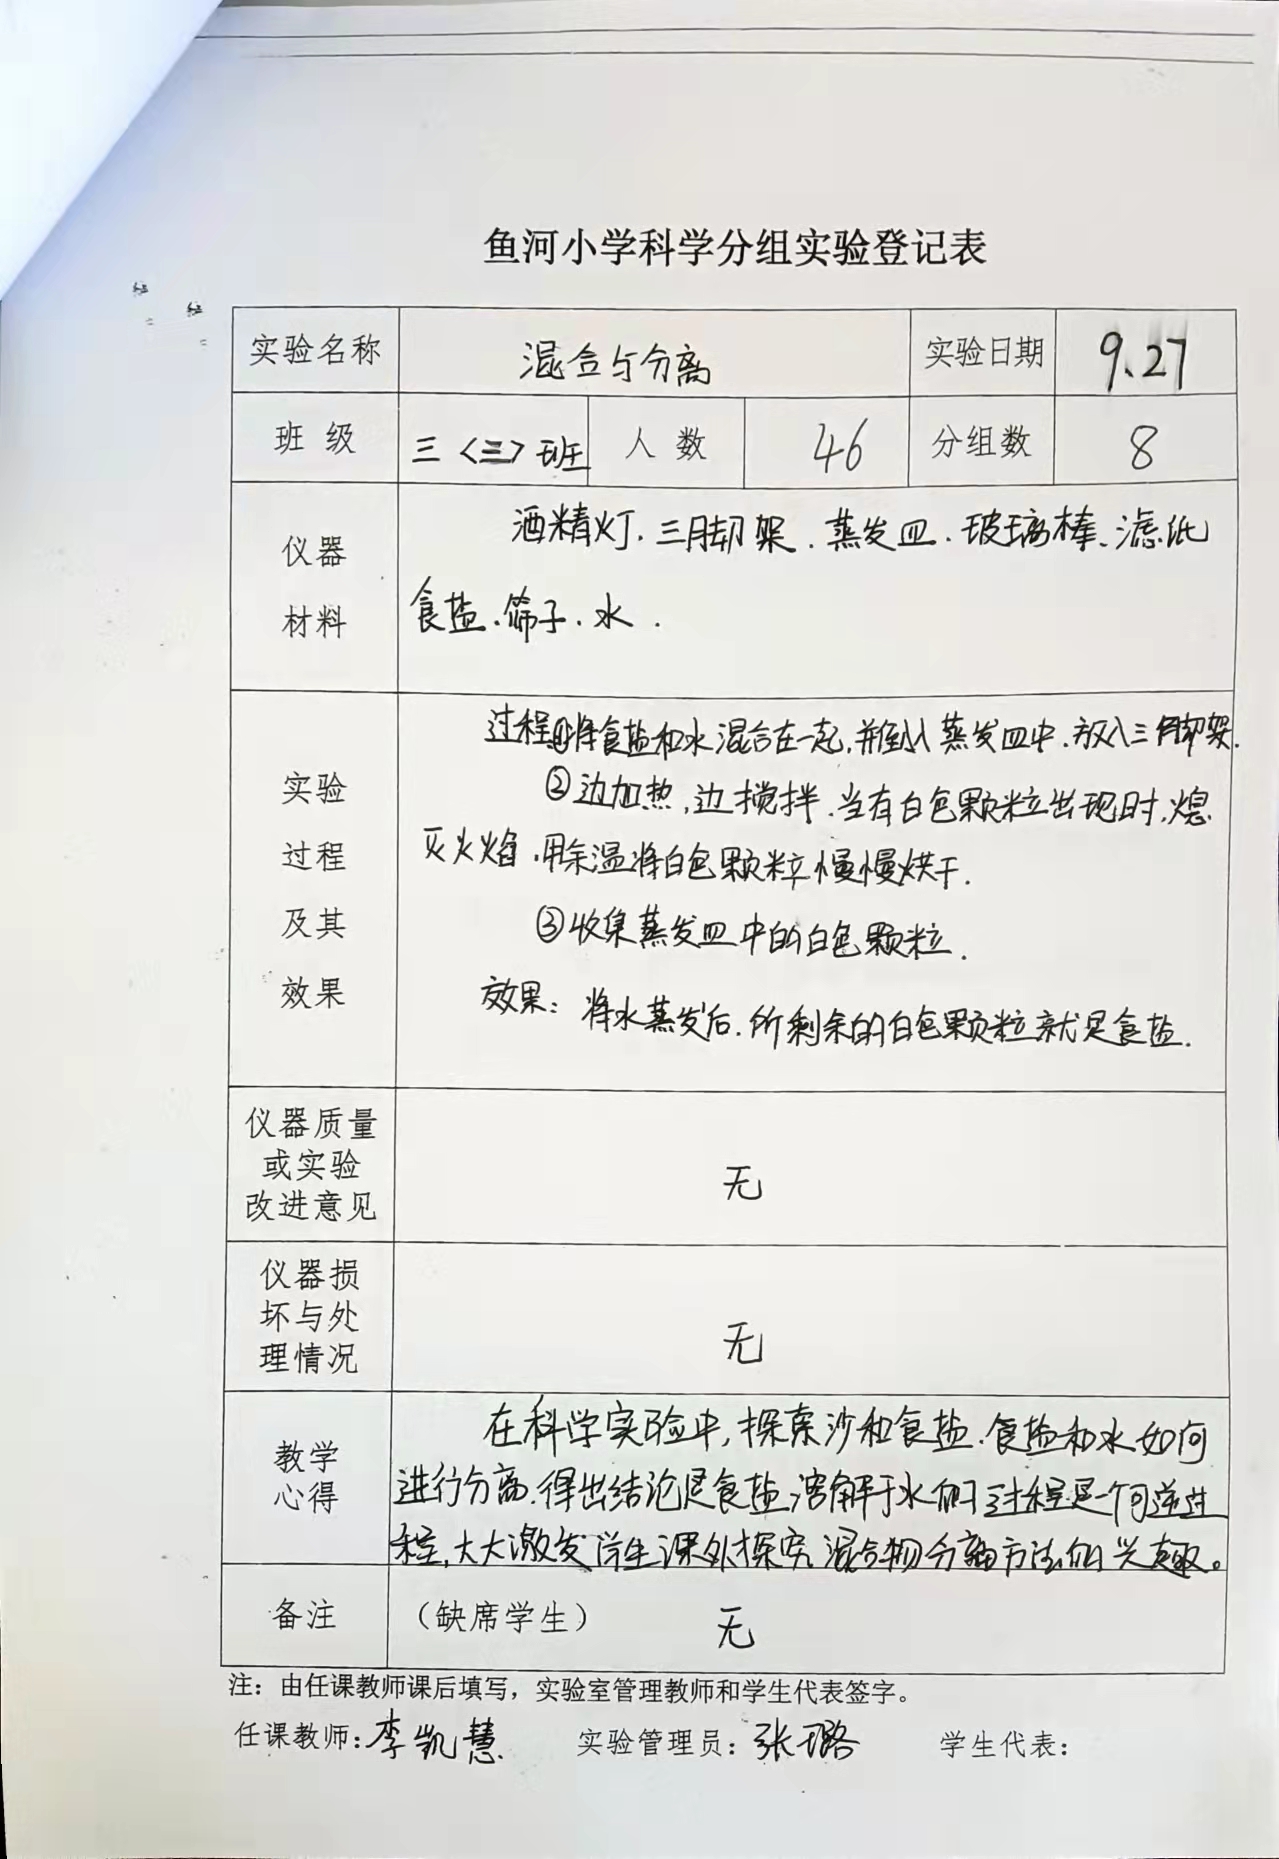 鱼河小学科学分组实验登记表
实验名称 混合与分离 实验日期 9.27
班 级 三〈三〉班 人 数 46 分组数 8
仪器
材料
酒精灯.三脚架.蒸发皿.玻璃棒、滤纸
食盐.筛子.水.
实验
过程
及其
效果
过程①将食盐和水混合在一起,并倒入蒸发皿中.放入三脚架.
②边加热,边搅拌.当有白色颗粒出现时,熄
灭火焰.用余温将白色颗粒慢慢烘干.
③收集蒸发皿中的白色颗粒.
效果:将水蒸发后.所剩余的白色颗粒就是食盐.
仪器质量
或实验
改进意见
无
仪器损
坏与处
理情况
无
教学
心得
在科学实验中,探索沙和食盐.食盐和水如何
进行分离.得出结论是食盐溶解于水的过程是一个可逆过
程,大大激发学生课外探究混合物分离方法的兴趣。
备注 (缺席学生) 无
注：由任课教师课后填写，实验室管理教师和学生代表签字。
任课教师:李凯慧 实验管理员：张璐 学生代表：